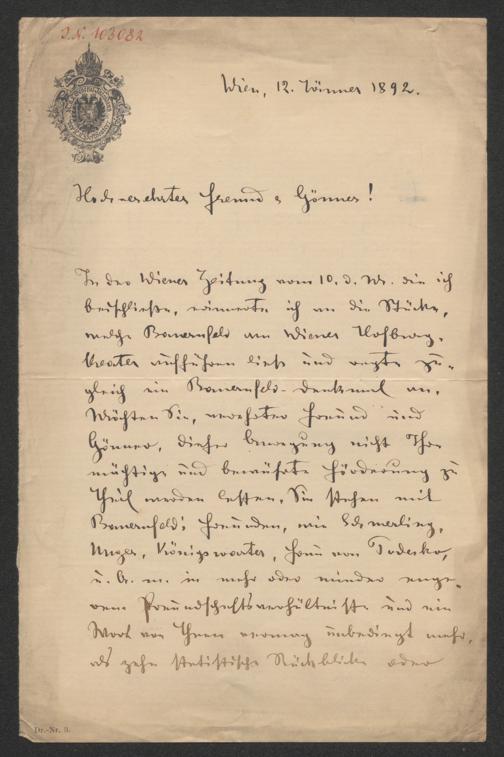 J.N. 103082
Wien, 12. Jänner 1892.
Hochverehrter Freund & Gönner!
In der Wiener Zeitung vom 10. d. Mts. die ich
beischließe, erinnerte ich an die Stücke,
welche Bauernfeld am Wiener Hofburg-
theater aufführen ließ und regte zu-
gleich ein Bauernfeld-Denkmal an.
Möchten Sie, verehrter Freund und
Gönner, dieser Bewegung nicht Ihre
mächtige und bewußte Förderung zu
Theil werden lassen. Sie stehen mit
Bauernfeld's Freunden, wie Schmerling,
Unger, Königswarter, Frau von Todesko,
u. a. m. in mehr oder minder enge-
rem Freundschaftsverhältniße und ein
Wort von Ihnen vermag unbedingt mehr,
als zehn statistische Rückblicke oder
Dr.-Nr. 3.